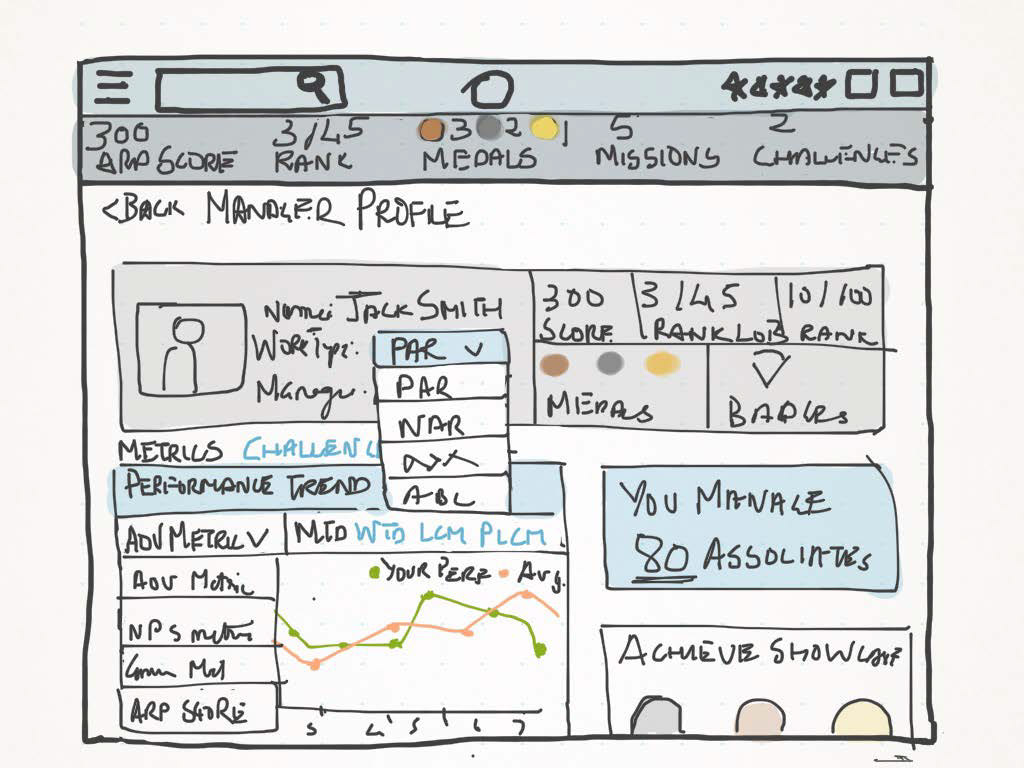 *****
300 3/45 3 2 1 5 2
ARP SCORE RANK MEDALS MISSIONS CHALLENGES
<BACK MANAGER PROFILE
Name: JACK SMITH
WORK TYPE: PAR
Manager:
PAR
NAR
ABL
300 3/45 10/100
SCORE RANK LOB RANK
MEDALS BADGES
METRICS CHALLENG
PERFORMANCE TREND
AOV METRIC MTD WTD LCM PLCM
YOUR PERF Avg.
AOV Metric
NPS metric
Comm Met
ARP SCORE
5 6 7
YOU MANAGE
80 ASSOCIATES
ACHIEVE SHOWCASE